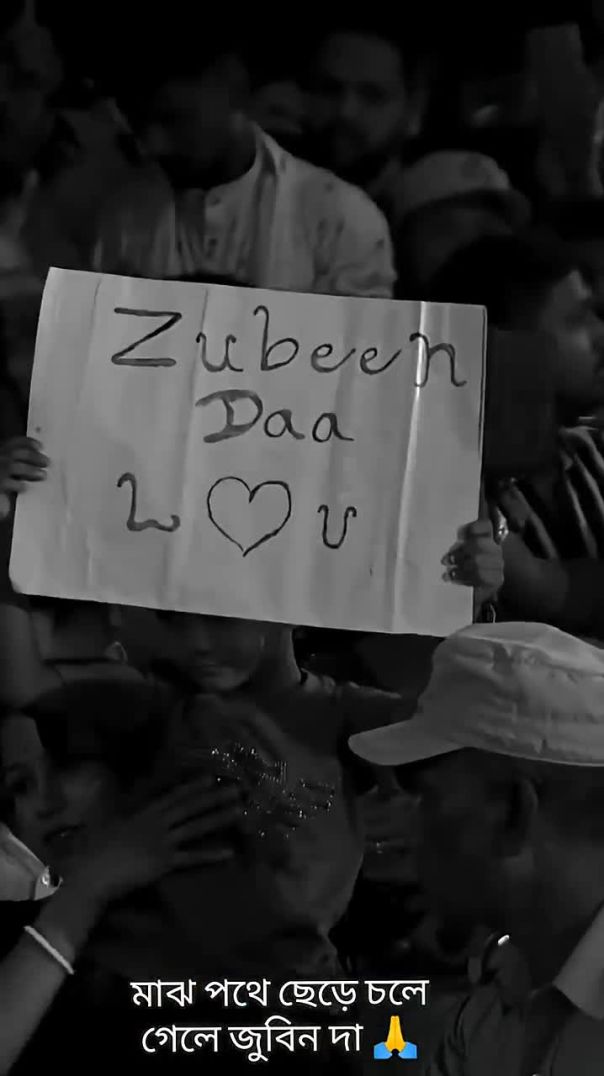 Zubeen
Daa
L ♡ U
মাঝ পথে ছেড়ে চলে
গেলে জুবিন দা 🙏